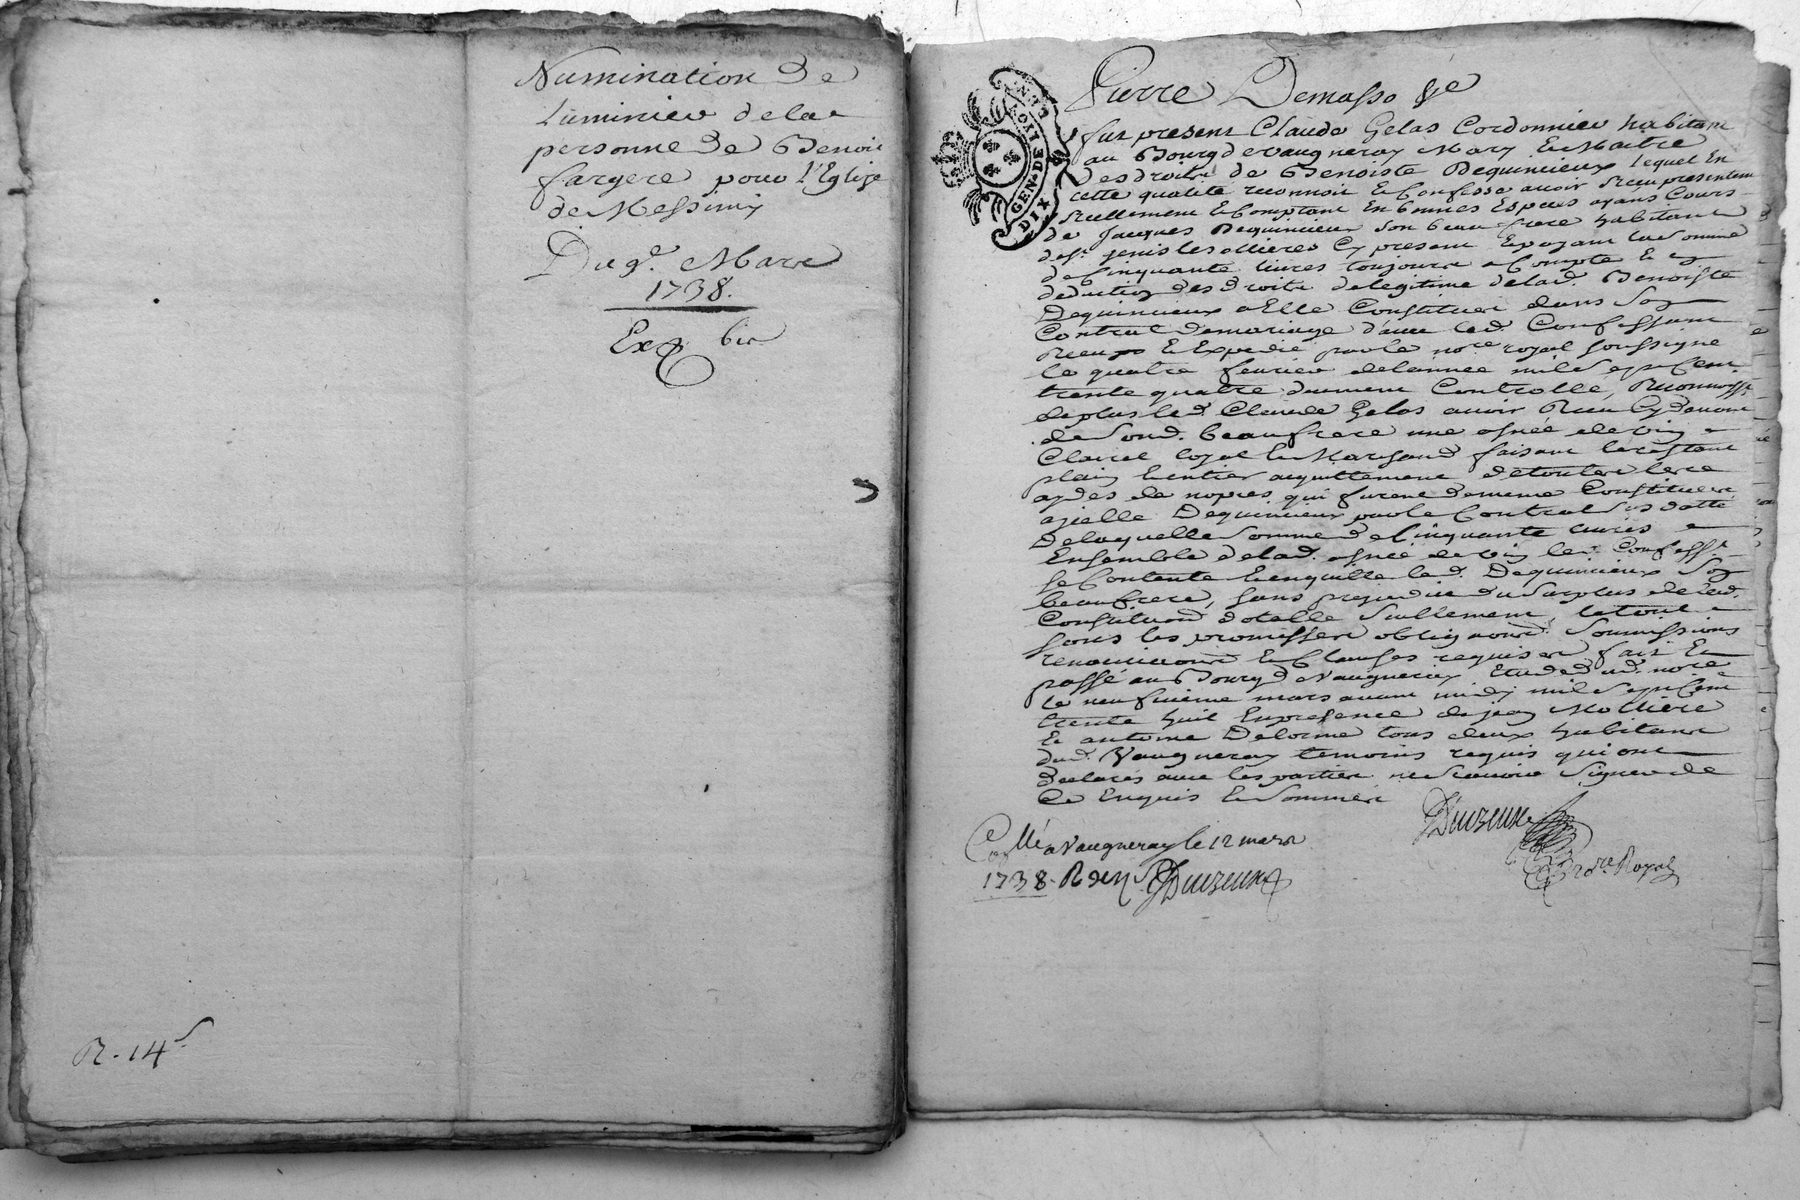 Numination de
Luminier de la
personne de Benoit
fargere pour l'Eglise
de Messimy
Du 9e. Mars
1738.
Exp. bis
R. 14s
GEN. DE LYON
DIX
Pierre Demasso
fut present Claude Gelas Cordonnier habitant
au Bourg de vaugneray Mary & Maitre
des droits de Benoiste Dequincieux lequel En
cette qualité reconnoit & Confesse avoir Receu presentem
Reellement & Comptant En bonnes Especes ayans Cours
de Jacques Dequincieux son beau frere habitant
de st. genis les ollieres Cy present Epayant la Somme
de Cinquante livres toujours a Compte & en
deduction des droits de legitime de lad. Benoiste
Dequincieux a Elle Constitues dans Son
Contrat de mariage d'avec led. Confessant
Receu & Expedié par le nore. royal soussigné
le quatre fevrier de l'année mil sept Cent
trente quatre duement Controllé, Reconnoiss
de plus led. Claude Gelas avoir Receu Cy devant
de Sond. beaufrere une asnée de vin
Clairet loyal & Marchand faisant le restant
plein & entier acquittement de toutes les
aydes de nopces qui furent de meme Constituees
a jcelle Dequincieux par le Contrat Susdatte
De laquelle Somme de Cinquante livres
Ensemble de lad. asnée de vin led. Confesst
se Contente & en quitte led. Dequincieux Son
beaufrere, sans prejudice du Surplus de lad.
Constitution dotalle Seullement, le tout
sous les promesses obligations Soumissions
renonciations & Clauses requises fait &
passé au Bourg de vaugneray Etude dud. nore
le neufvieme mars avant midy mil Sept Cent
trente huit En presence de jean Molliere
& antoine Delorme tous deux habitans
dud. Vaugneray temoins requis qui ont
declarés avec les parties ne Scavoir Signer de
Ce Enquis & Sommés
nore. Royal
Collé a Vaugneray le 12 mars
1738. R